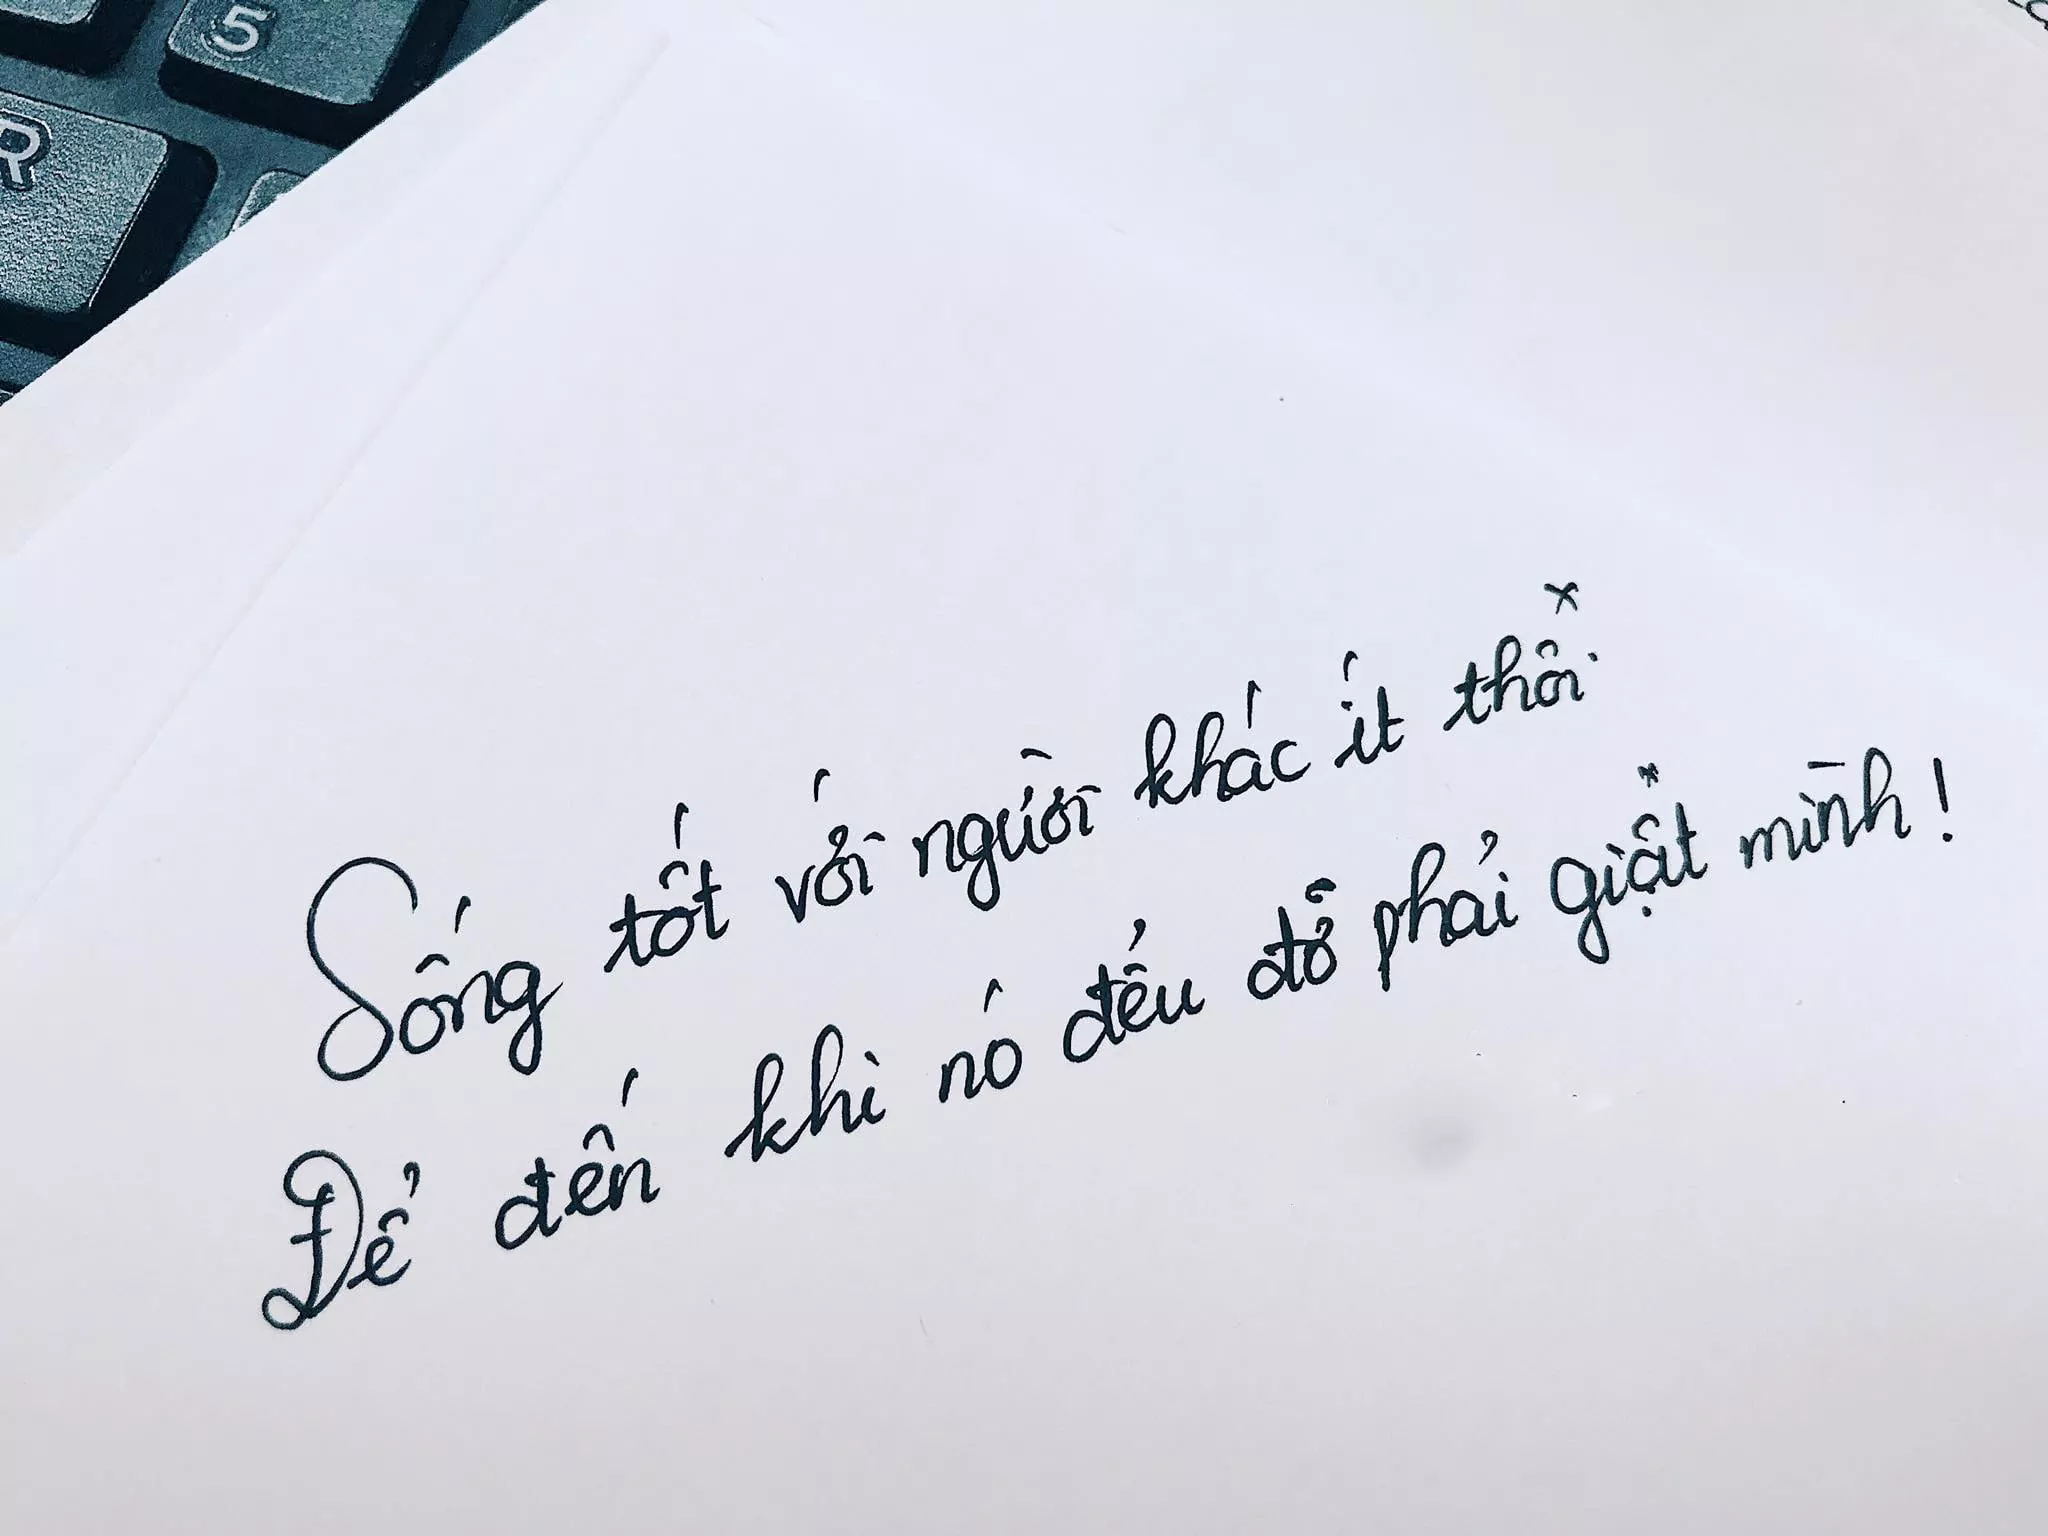 5
R
Sống tốt với người khác ít thôi.
Để đến khi nó đểu đỡ phải giật mình!